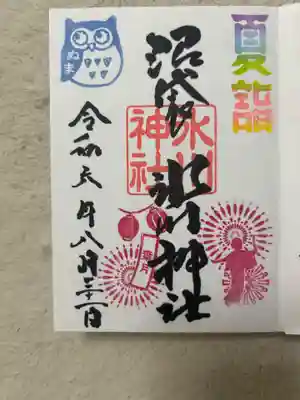 夏詣
沼袋氷川神社
氷川神社
ぬま
令和五年八月三十一日
葉月